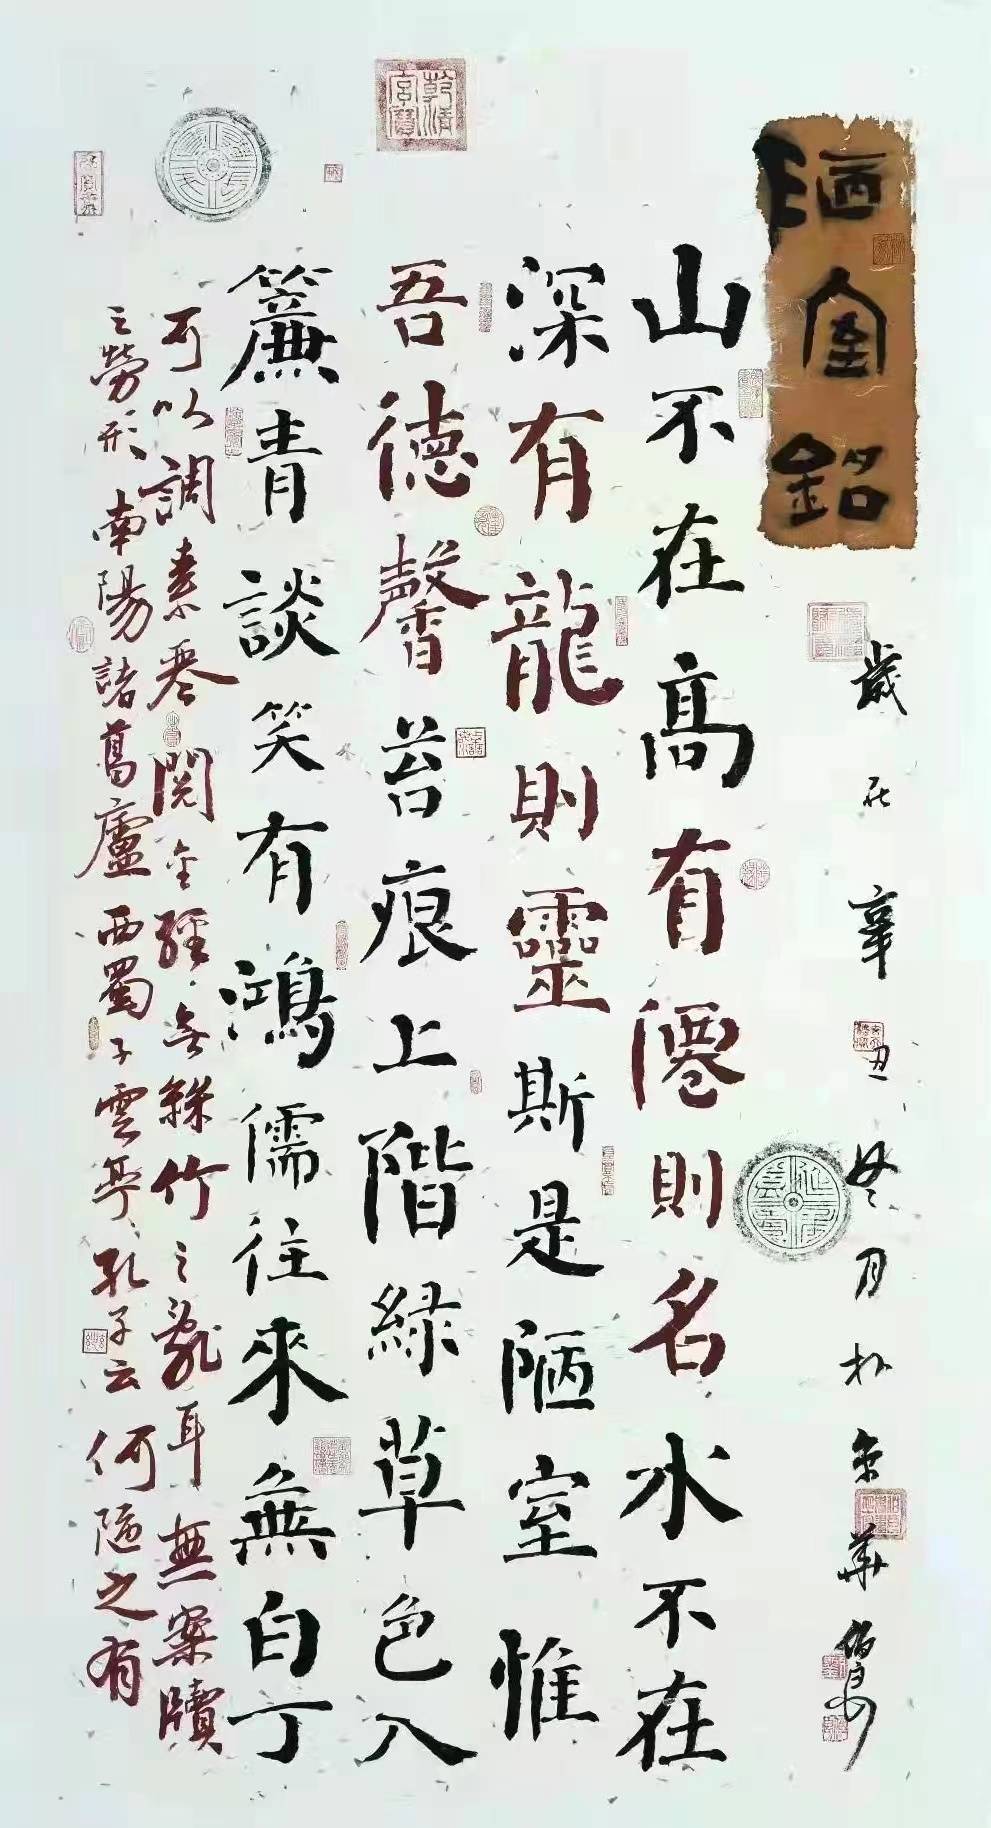 陋室銘
歲在辛丑冬月於京華
山不在高有僊則名水不在
深有龍則靈斯是陋室惟
吾德馨苔痕上階緑草色入
簾青談笑有鴻儒往來無白丁
可以調素琴閱金經無絲竹之亂耳無案牘
之勞形南陽諸葛廬西蜀子雲亭孔子云何陋之有
乾清宮寶